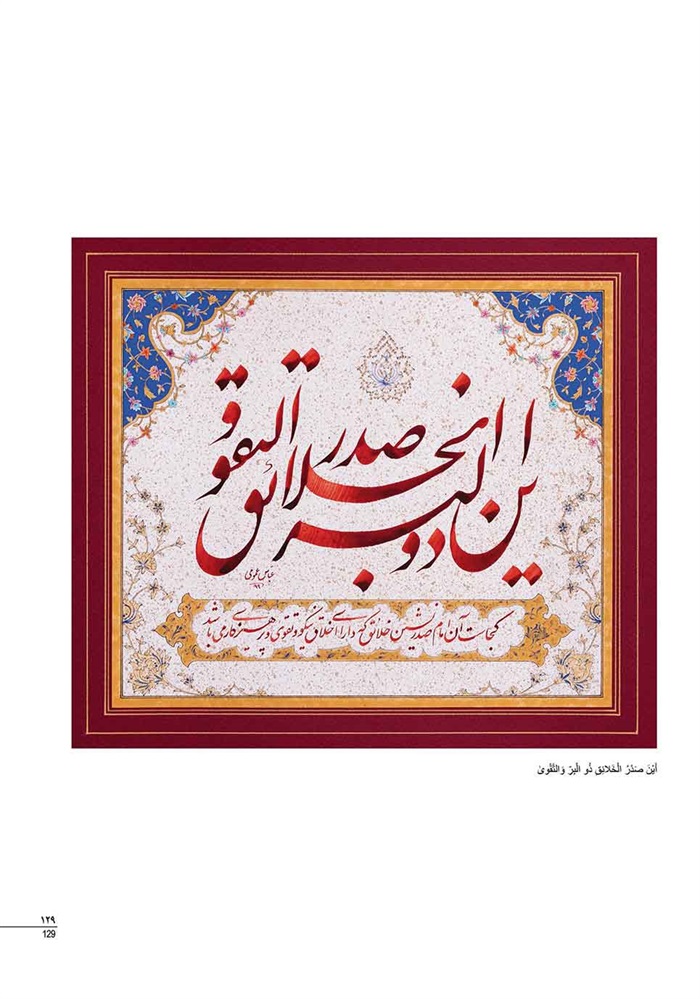 این صدر الخلائق ذو البر و التقوی
عباس
کجاست آن امام صدرنشین خلائق که دارای اخلاق نیکو و تقوی و پرهیزکاری می باشد
اَیْنَ صَدْرُ الْخَلائِقِ ذُو الْبِرِّ وَالتَّقْویٰ
۱۲۹
129